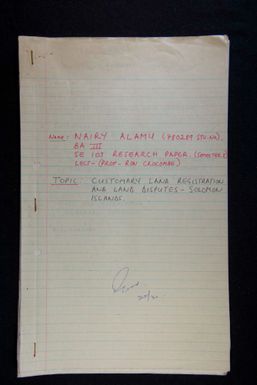 NAME: NAIRY ALAMU (780289 STU.NO).
BA III
SE 103 RESEARCH PAPER. (SEMESTER
LECT- (PROF- RON CROCOMBE)
TOPIC: CUSTOMARY LAND REGISTRATION
AND LAND DISPUTES - SOLOMON
ISLANDS.